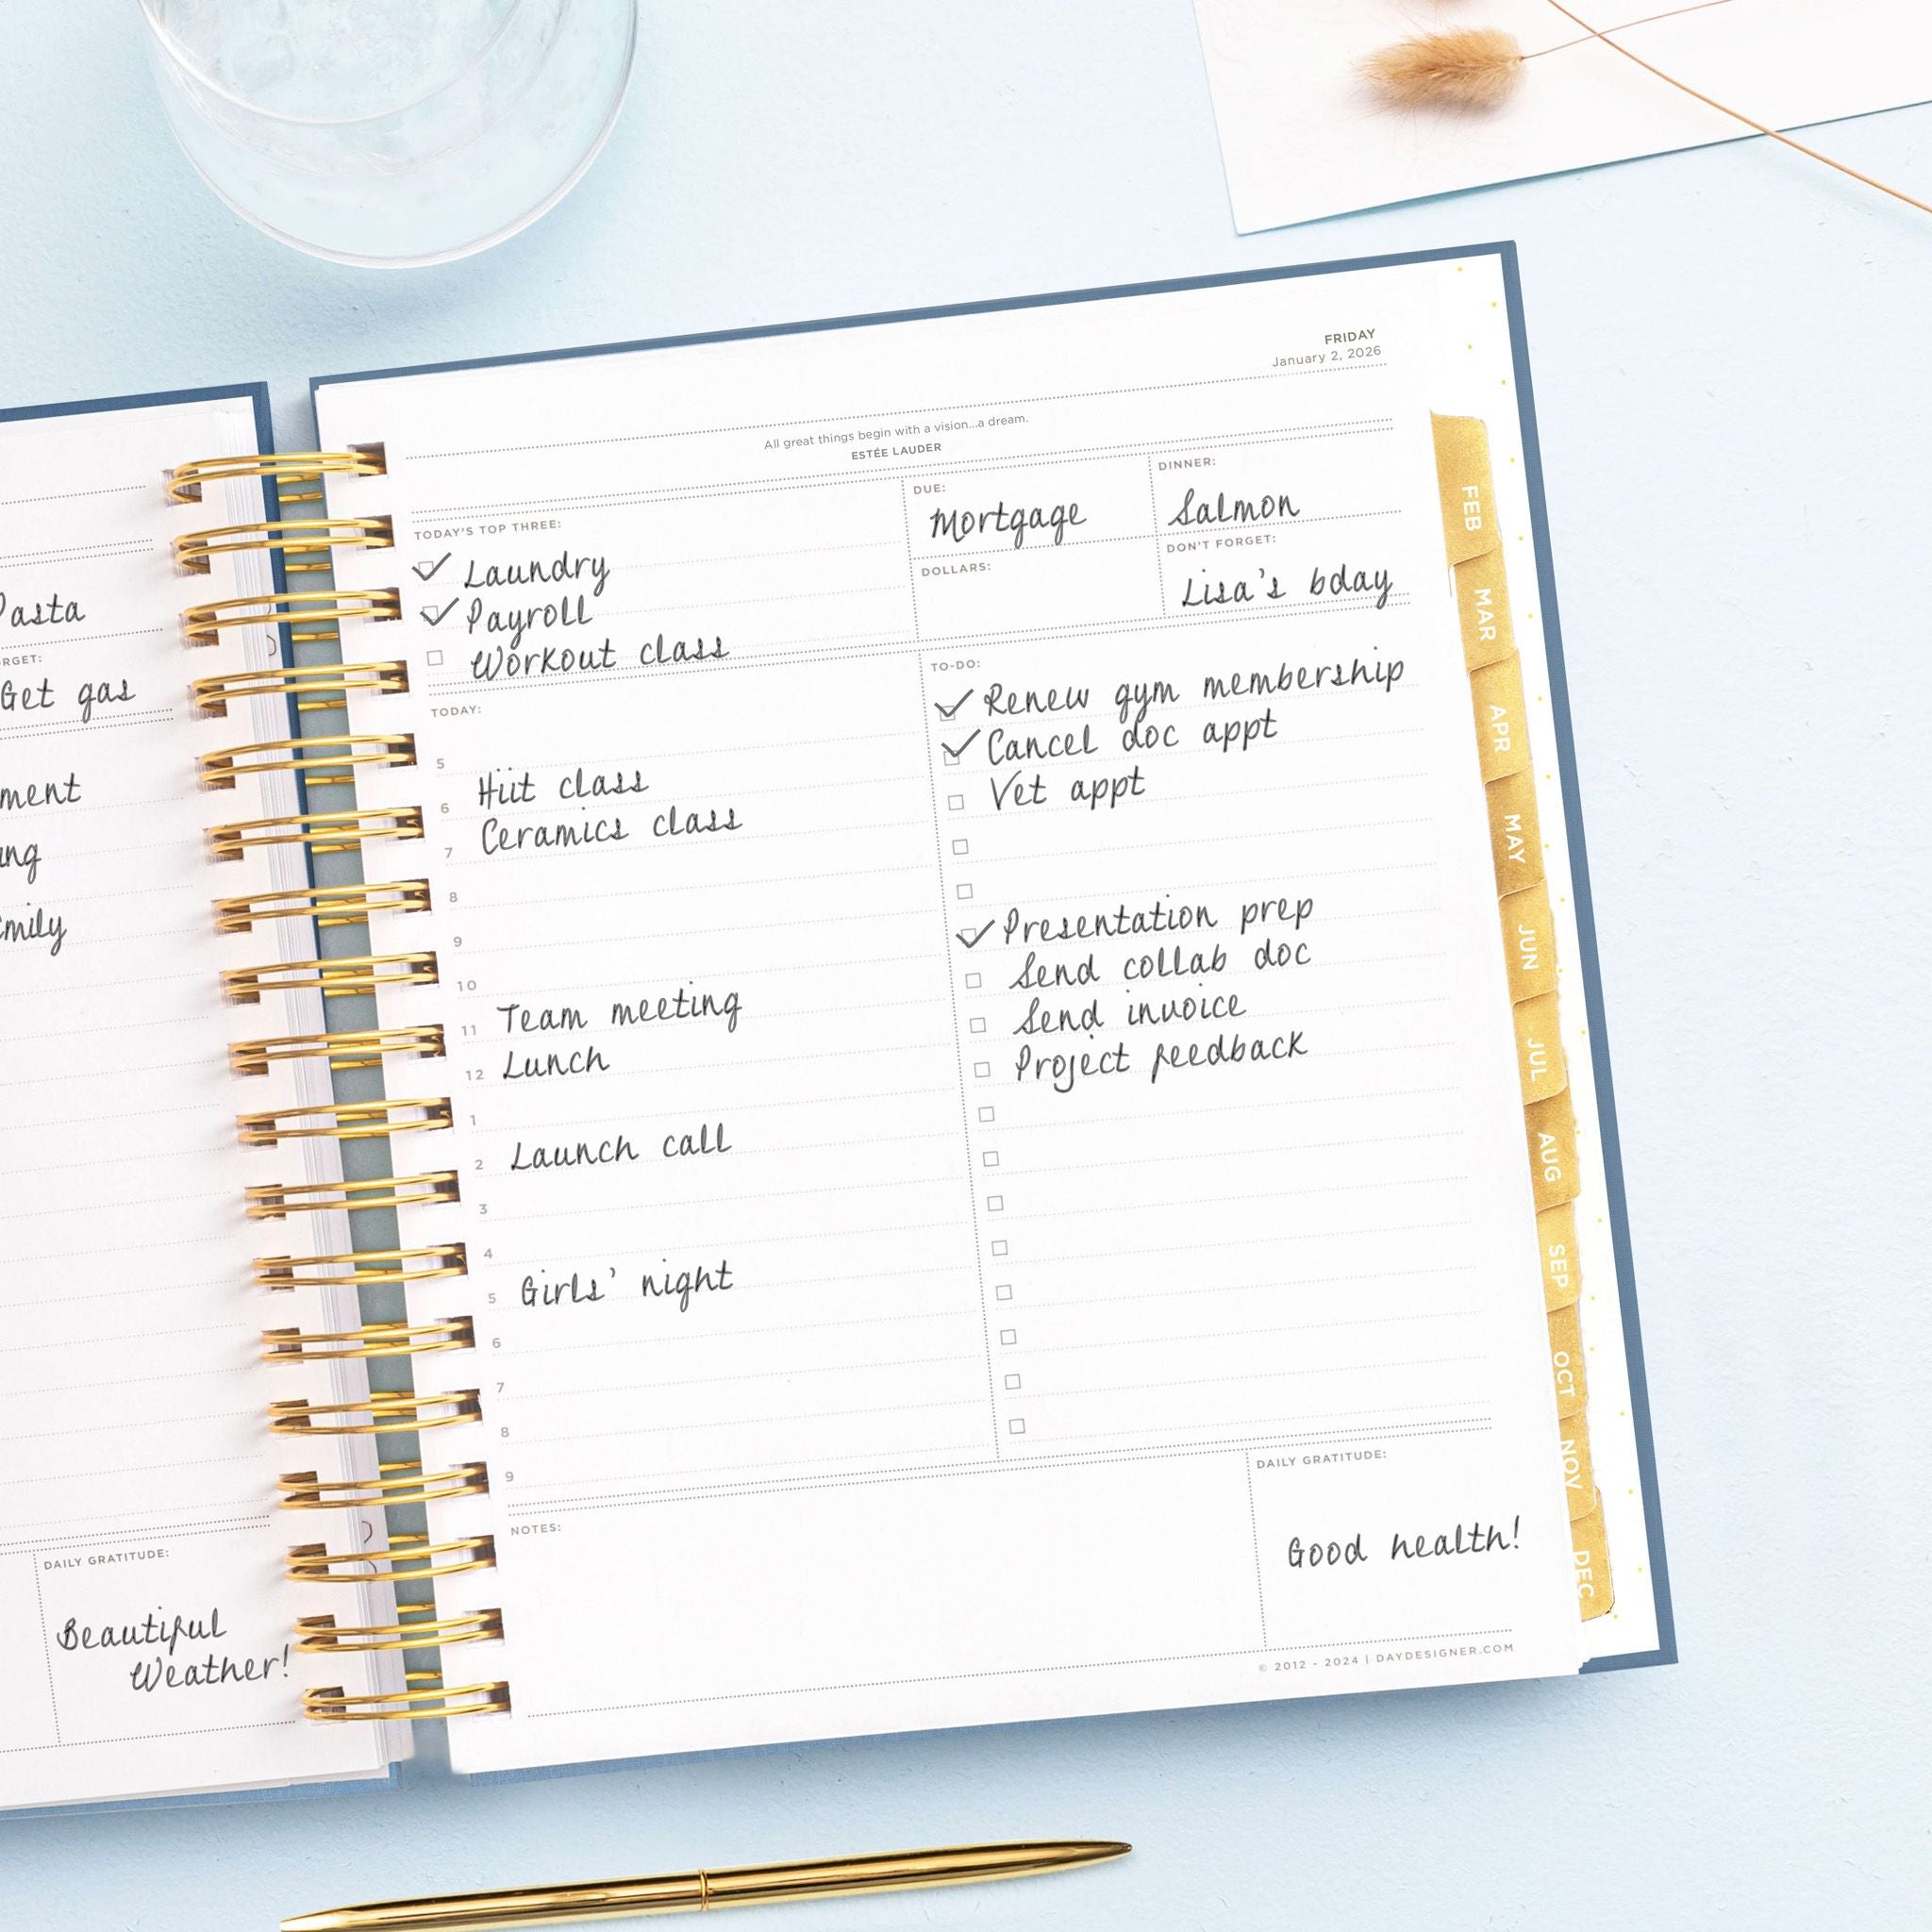 Pasta
RGET:
Get gas
ment
ng
mily
DAILY GRATITUDE:
Beautiful
Weather!
FRIDAY
January 2, 2026
All great things begin with a vision...a dream.
ESTÉE LAUDER
TODAY'S TOP THREE:
Laundry
Payroll
Workout class
DUE:
Mortgage
DOLLARS:
DINNER:
Salmon
DON'T FORGET:
Lisa's bday
TODAY:
5
6 Hiit class
7 Ceramics class
8
9
10
11 Team meeting
12 Lunch
1
2 Launch call
3
4
5 Girls' night
6
7
8
9
TO-DO:
Renew gym membership
Cancel doc appt
Vet appt
Presentation prep
Send collab doc
Send invoice
Project feedback
NOTES:
DAILY GRATITUDE:
Good health!
© 2012 - 2024 | DAYDESIGNER.COM
FEB
MAR
APR
MAY
JUN
JUL
AUG
SEP
OCT
NOV
DEC